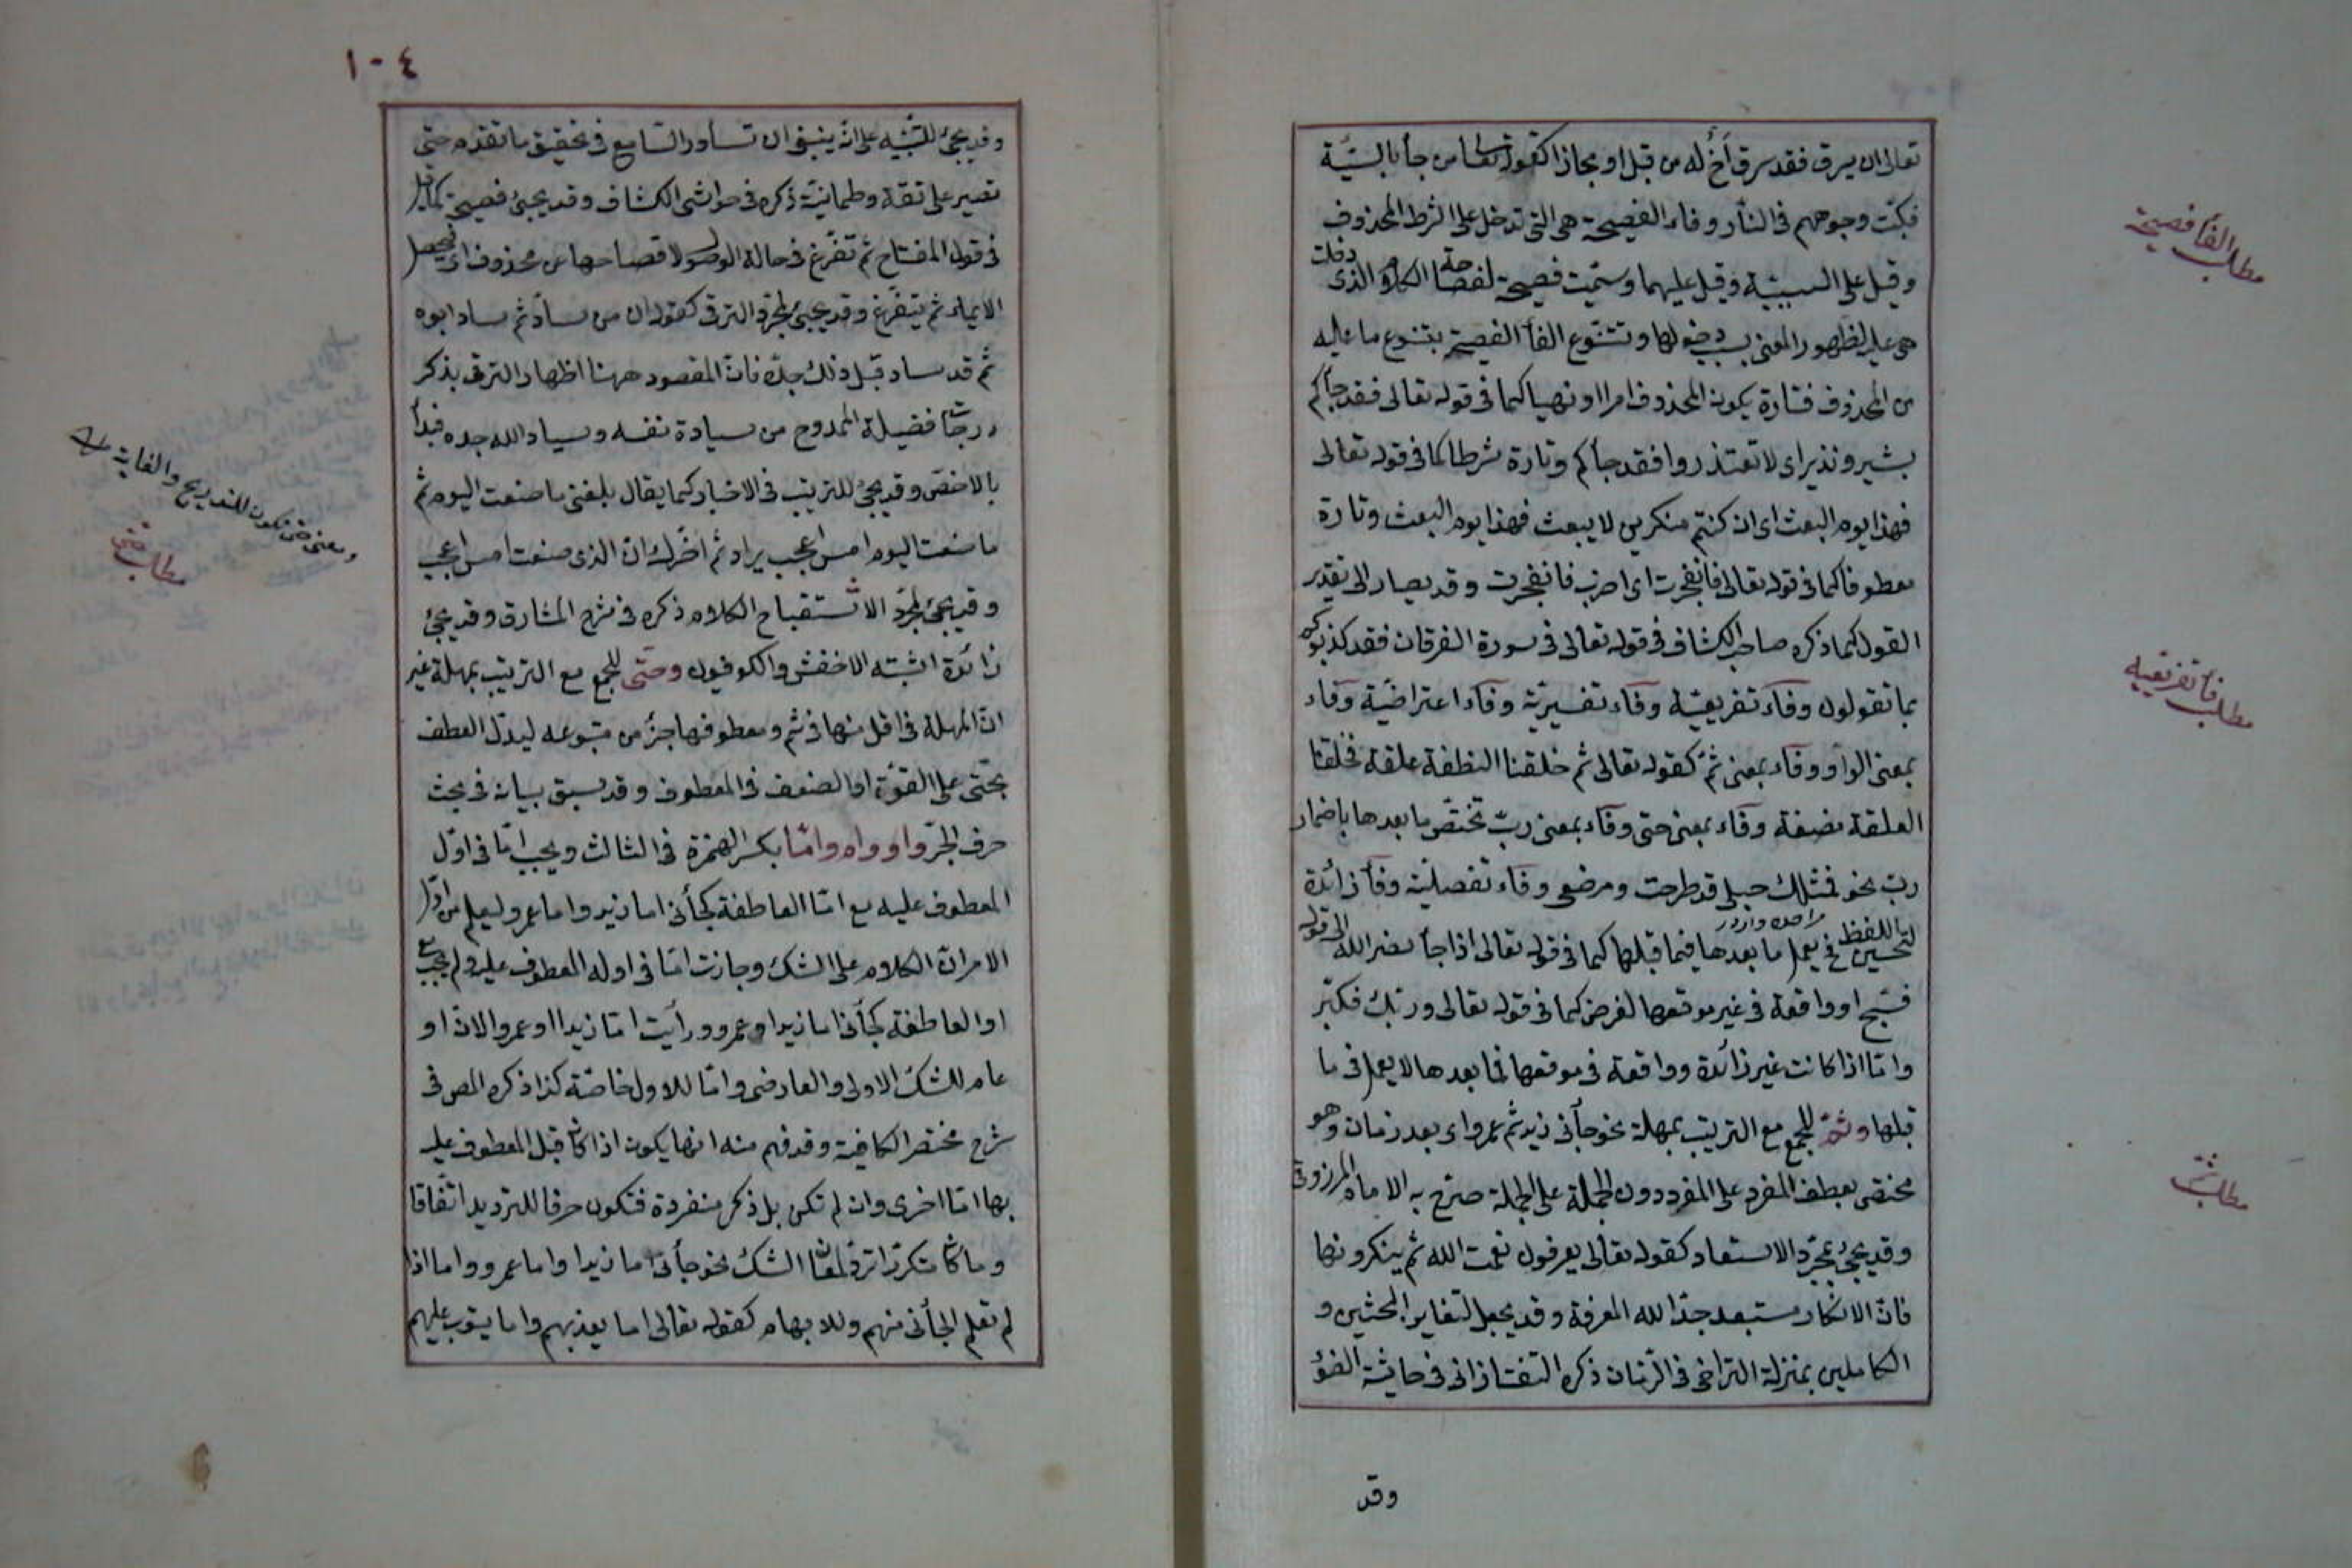 تعالى ان يسرق فقد سرق أخ له من قبل او مجازا كقوله تعالى من جأ بالسيّئة
فكبّت وجوههم فى النّار وفاء الفصيحة هى التى تدخل على الشرط المحذوف
وقيل على السببيّة وقيل عليهما وسمّيت فصيحة لفصاحة الكلام الذى دخلت
هى عليه لظهور المعنى بسبب دخولها وتتنوّع الفأ الفصيحة بتنوع ما عليه
من المحذوف فتارة يكون المحذوف امرا او نهيا كما فى قوله تعالى فقد جأكم
بشير ونذير اى لا تعتذروا فقد جأكم وتارة شرطا كما فى قوله تعالى
فهذا يوم البعث اى ان كنتم منكرين لا يبعث فهذا يوم البعث وتارة
معطوفا كما فى قوله تعالى فانفجرت اى اضرب فانفجرت وقد يصار الى تقدير
القول كما ذكره صاحب الكشاف فى قوله تعالى فى سورة الفرقان فقد كذبوكم
بما تقولون وفاء تفريعيّة وفاء تفسيريّة وفاء اعتراضيّة وفاء
بمعنى الواو وفاء بمعنى ثمّ كقوله تعالى ثم خلقنا النطفة علقة فخلقنا
العلقة مضغة وفاء بمعنى حتى وفاء بمعنى ربّ تختصّ ما بعدها باضمار
ربّ نحو فمثلك حبلى قد طرحت ومرضع وفاء تفصيليّة وفأ زائدة
لتحسين اللفظ فيعمل ما بعدها فيما قبلها كما فى قوله تعالى اذا جأ نصر الله الى قوله
فسبّح او واقعة فى غير موقعها لغرض كما فى قوله تعالى وربّك فكبّر
وامّا اذا كانت غير زائدة وواقعة فى موقعها فما بعدها لا يعمل فى ما
قبلها وثمّ للجمع مع الترتيب بمهلة نحو جأنى زيد ثم عمرو اى بعد زمان وهو
مختصّ بعطف المفرد على المفرد دون الجملة على الجملة صرّح به الامام المرزوقى
وقد يجئ لمجرّد الاستبعاد كقوله تعالى يعرفون نعمت الله ثم ينكرونها
فانّ الانكار مستبعد جدّا المعرفة وقد يجعل لتغاير البحثين و
الكاملين بمنزلة التراخى فى الزمان ذكره التفتازانى فى حاشية
وقد
مطلب الفأ فصيحة
مطلب فأ تفريعيه
مطلب ثمّ
١٠٤
وقد يجئ للتنبيه على انّه ينبغى ان السامع فى تحقيق ما تقدم حتى
تصير على ثقة وطمانيّة ذكره فى حواشى الكشاف وقد يجئ فصيحة كما قيل
فى قول المفتاح ثم تفرّغ فى حالة الوصول لافصاحها عن محذوف اى فيحصل
الايماء ثم يتفرّغ وقد يجئ لمجرّد الترقى كقوله ان من ساد ثم ساد ابوه
ثم قد ساد قبل ذلك جدّه فانّ المقصود ههنا اظهار الترقى بذكر
درجات فضيلة الممدوح من سيادة نفسه وسيادة جده فبدأ
بالاخصّ وقد يجئ للترتيب فى الاخبار كما يقال بلغنى ما صنعت اليوم ثم
ما صنعت اليوم امس اعجب يراد ثم اخبرك انّ الذى صنعت امس اعجب
وقد يجئ لمجرّد الاستفتاح الكلام ذكره فى شرح المشارق وقد يجئ
زائدة اثبته الاخفش والكوفيون وحتّى للجمع مع الترتيب بمهلة غير
انّ المهلة فى اقلّ منها فى ثم ومعطوفها جزء من متبوعه ليدلّ العطف
بحتّى على القوّة او الضعف فى المعطوف وقد سبق بيانه فى بحث
حرف الجرّ واو وام وامّا بكسر الهمزة فى الثالث ويجب امّا فى اوّل
المعطوف عليه مع امّا العاطفة كجأنى اما زيد واما عمرو ليعلم من اوّل
الامر انّ الكلام على الشك وجازت امّا فى اوله المعطوف عليه ولم يجب مع
او العاطفة كجأنى اما زيد او عمرو ورأيت امّا زيدا او عمرو الان او
عام للشك الاولى والعارضى وامّا للاول خاصّة كذا ذكره المص فى
شرح مختصر الكافية وقد فهم منه انها يكون اذا كان قبل المعطوف عليه
بها امّا اخرى وان لم تكن بل ذكر منفردة فتكون حرفا للترديد اتّفاقا
وما كان متكرّرا الشك نحو جأنى اما زيدا واما عمرو واما اذا
لم تعلم الجأنى منهم وللابهام كقوله تعالى اما يعذبهم واما يتوب عليهم
ومعنى حتى تكون للتدريج والغاية
مطلب حتى